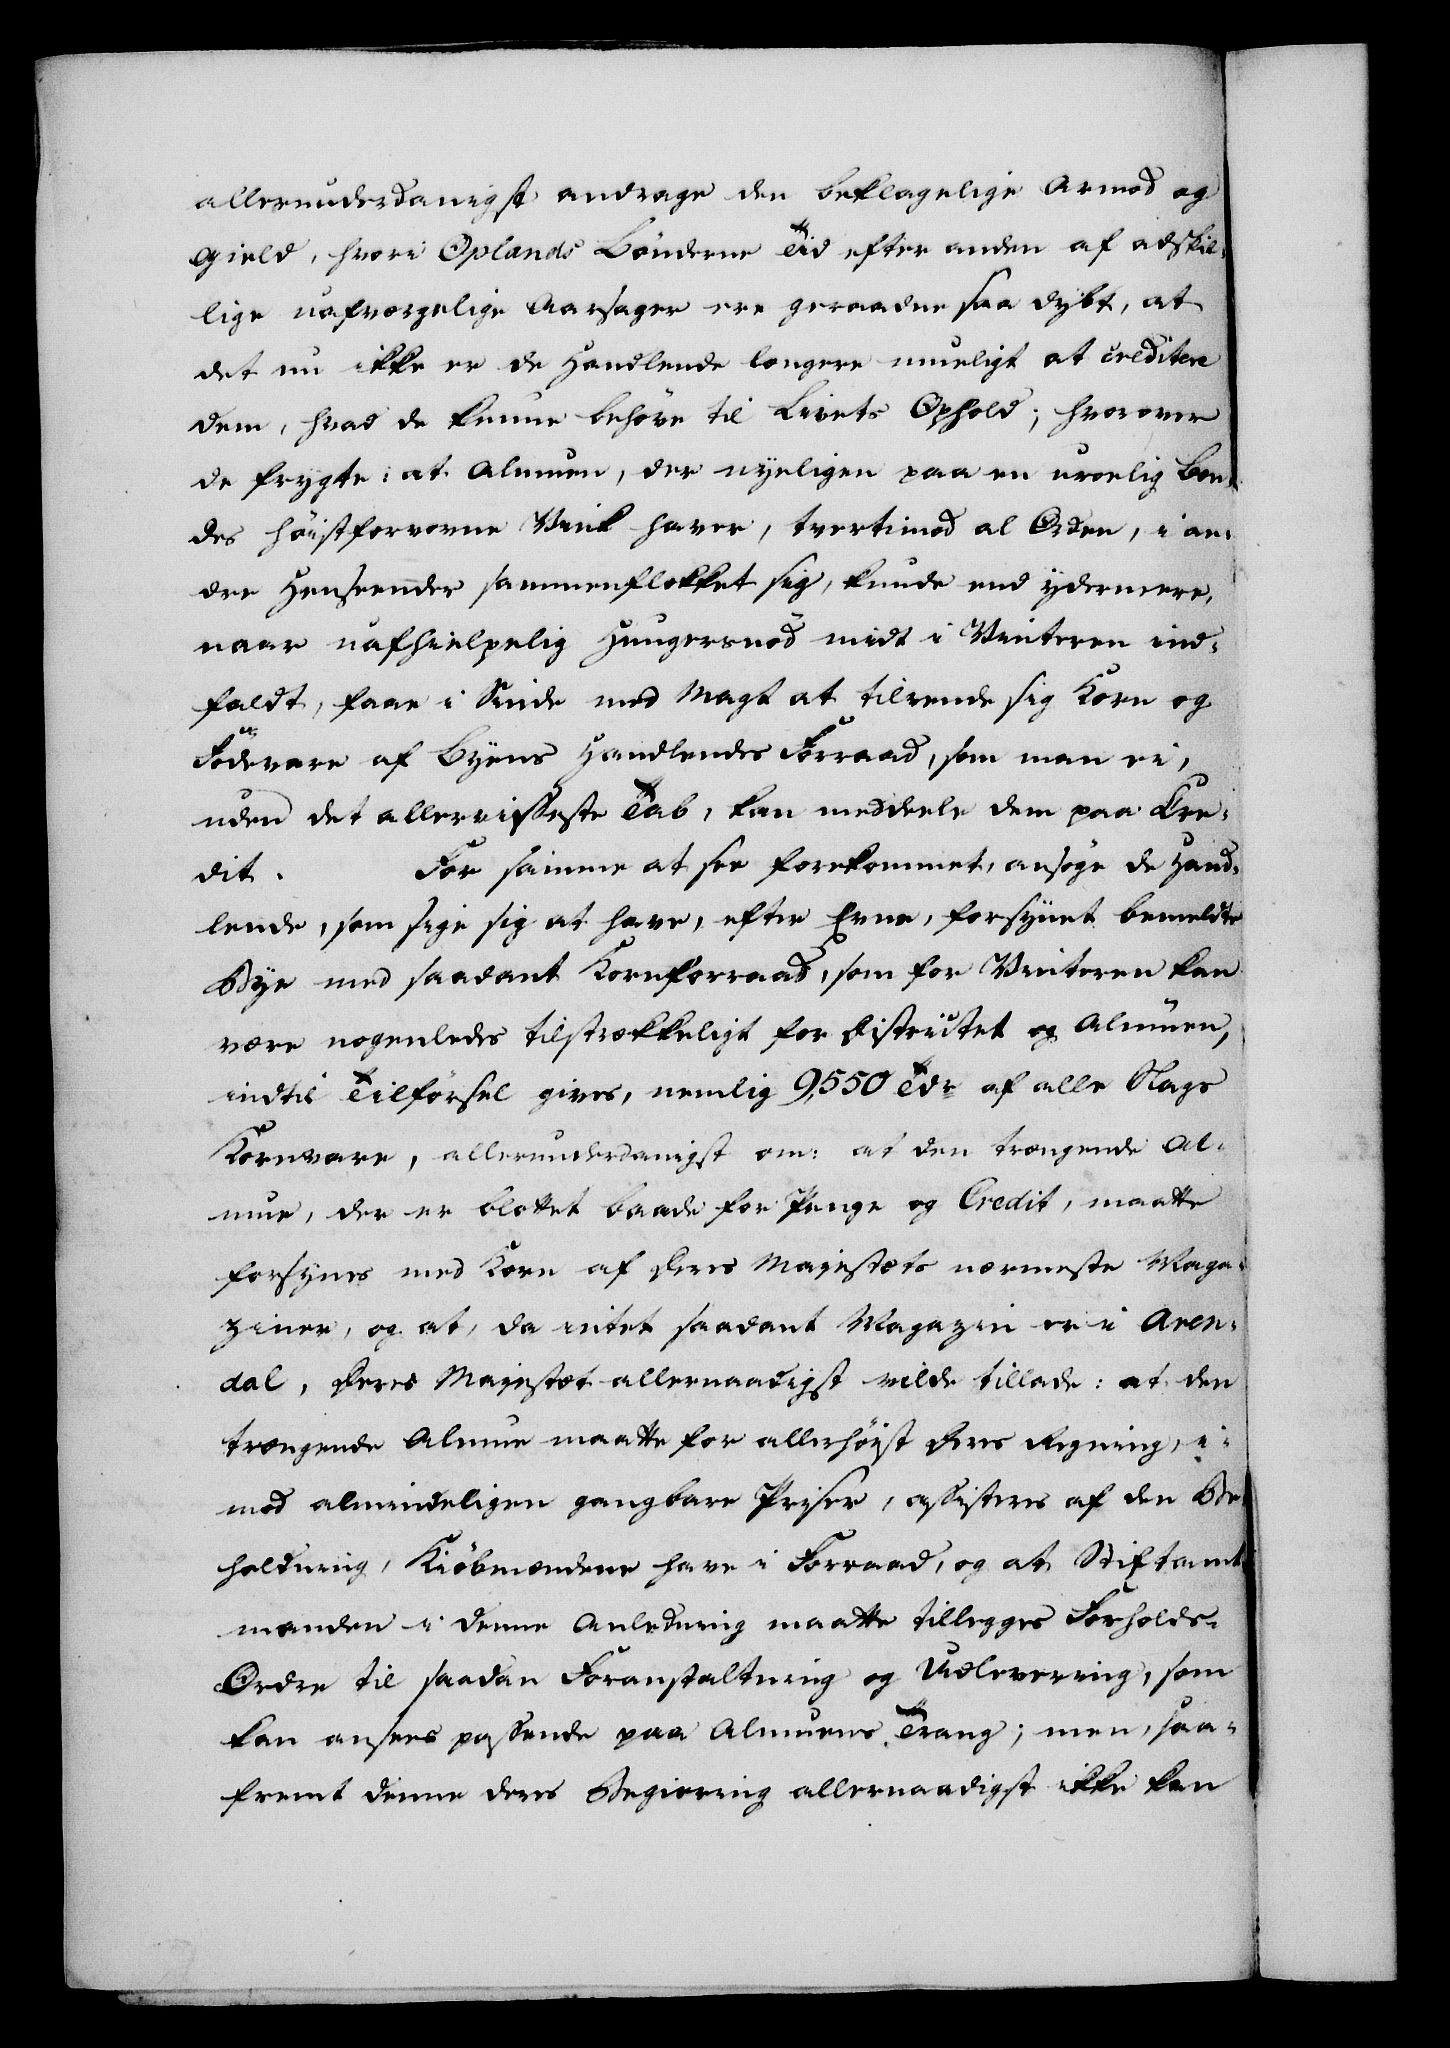 allerunderdanigst andrage den beklagelige Armod og
Gield, hvori Oplands Bönderne Tid efter anden af adskil-
lige uafværgelige Aarsager ere geraadne saa dybt, at
det nu ikke er de Handlende længere mueligt at creditere
dem, hvad de kunne behöve til Livets Ophold; hvorover
de frygte: at Almuen, der nyeligen paa en uroelig Bon-
des höistforvovne Vink haver, tvertimod al Orden, i an-
dre Henseender sammenflokket sig, kunde end ydermere,
naar uafhielpelig Hungersnöd midt i Vinteren ind-
faldt, faae i Sinde med Magt at tilvende sig Korn og
Födevare af Byens Handlendes Forraad, som man ei,
uden det allervisseste Tab, kan meddele dem paa Cre-
dit. For saimme at see forekommet, ansöge de Hand-
lende, som sige sig at have, efter Evne, forsÿnet bemeldte
Bye med saadant Kornforraad, som for Vinteren kan
være nogenledes tilstrækkeligt for Districtet og Almuen,
indtil Tilförsel gives, nemlig 9,550 Tdr af alle Slags
Kornvare, allerunderdanigst om: at den trængende Al-
mue, der er blottet baade for Penge og Credit, maatte
forsynes med Korn af Deres Majestæts nærmeste Maga-
ziner, og at, da intet saadant Magazin er i Aren-
dal, Deres Majestæt allernaadigst vilde tillade: at den
trængende Almue maatte for allerhöist Deres Regning, i-
mod almindeligen gangbare Priser, assisteres af den Be-
holdning, Kiöbmændene have i Forraad, og at Stiftamt-
manden i denne Anledning maatte tillegges Forholds-
Ordre til saadan Foranstaltning og Udlevering, som
kan ansees passende paa Almuens Trang; men, saa-
fremt denne deres Begiering allernaadigst ikke kan